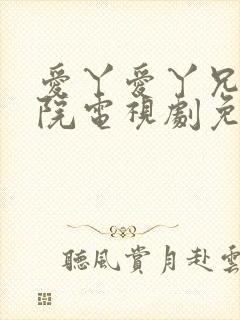 愛丫愛丫兄
院電視劇免
聽風賞月赴雲